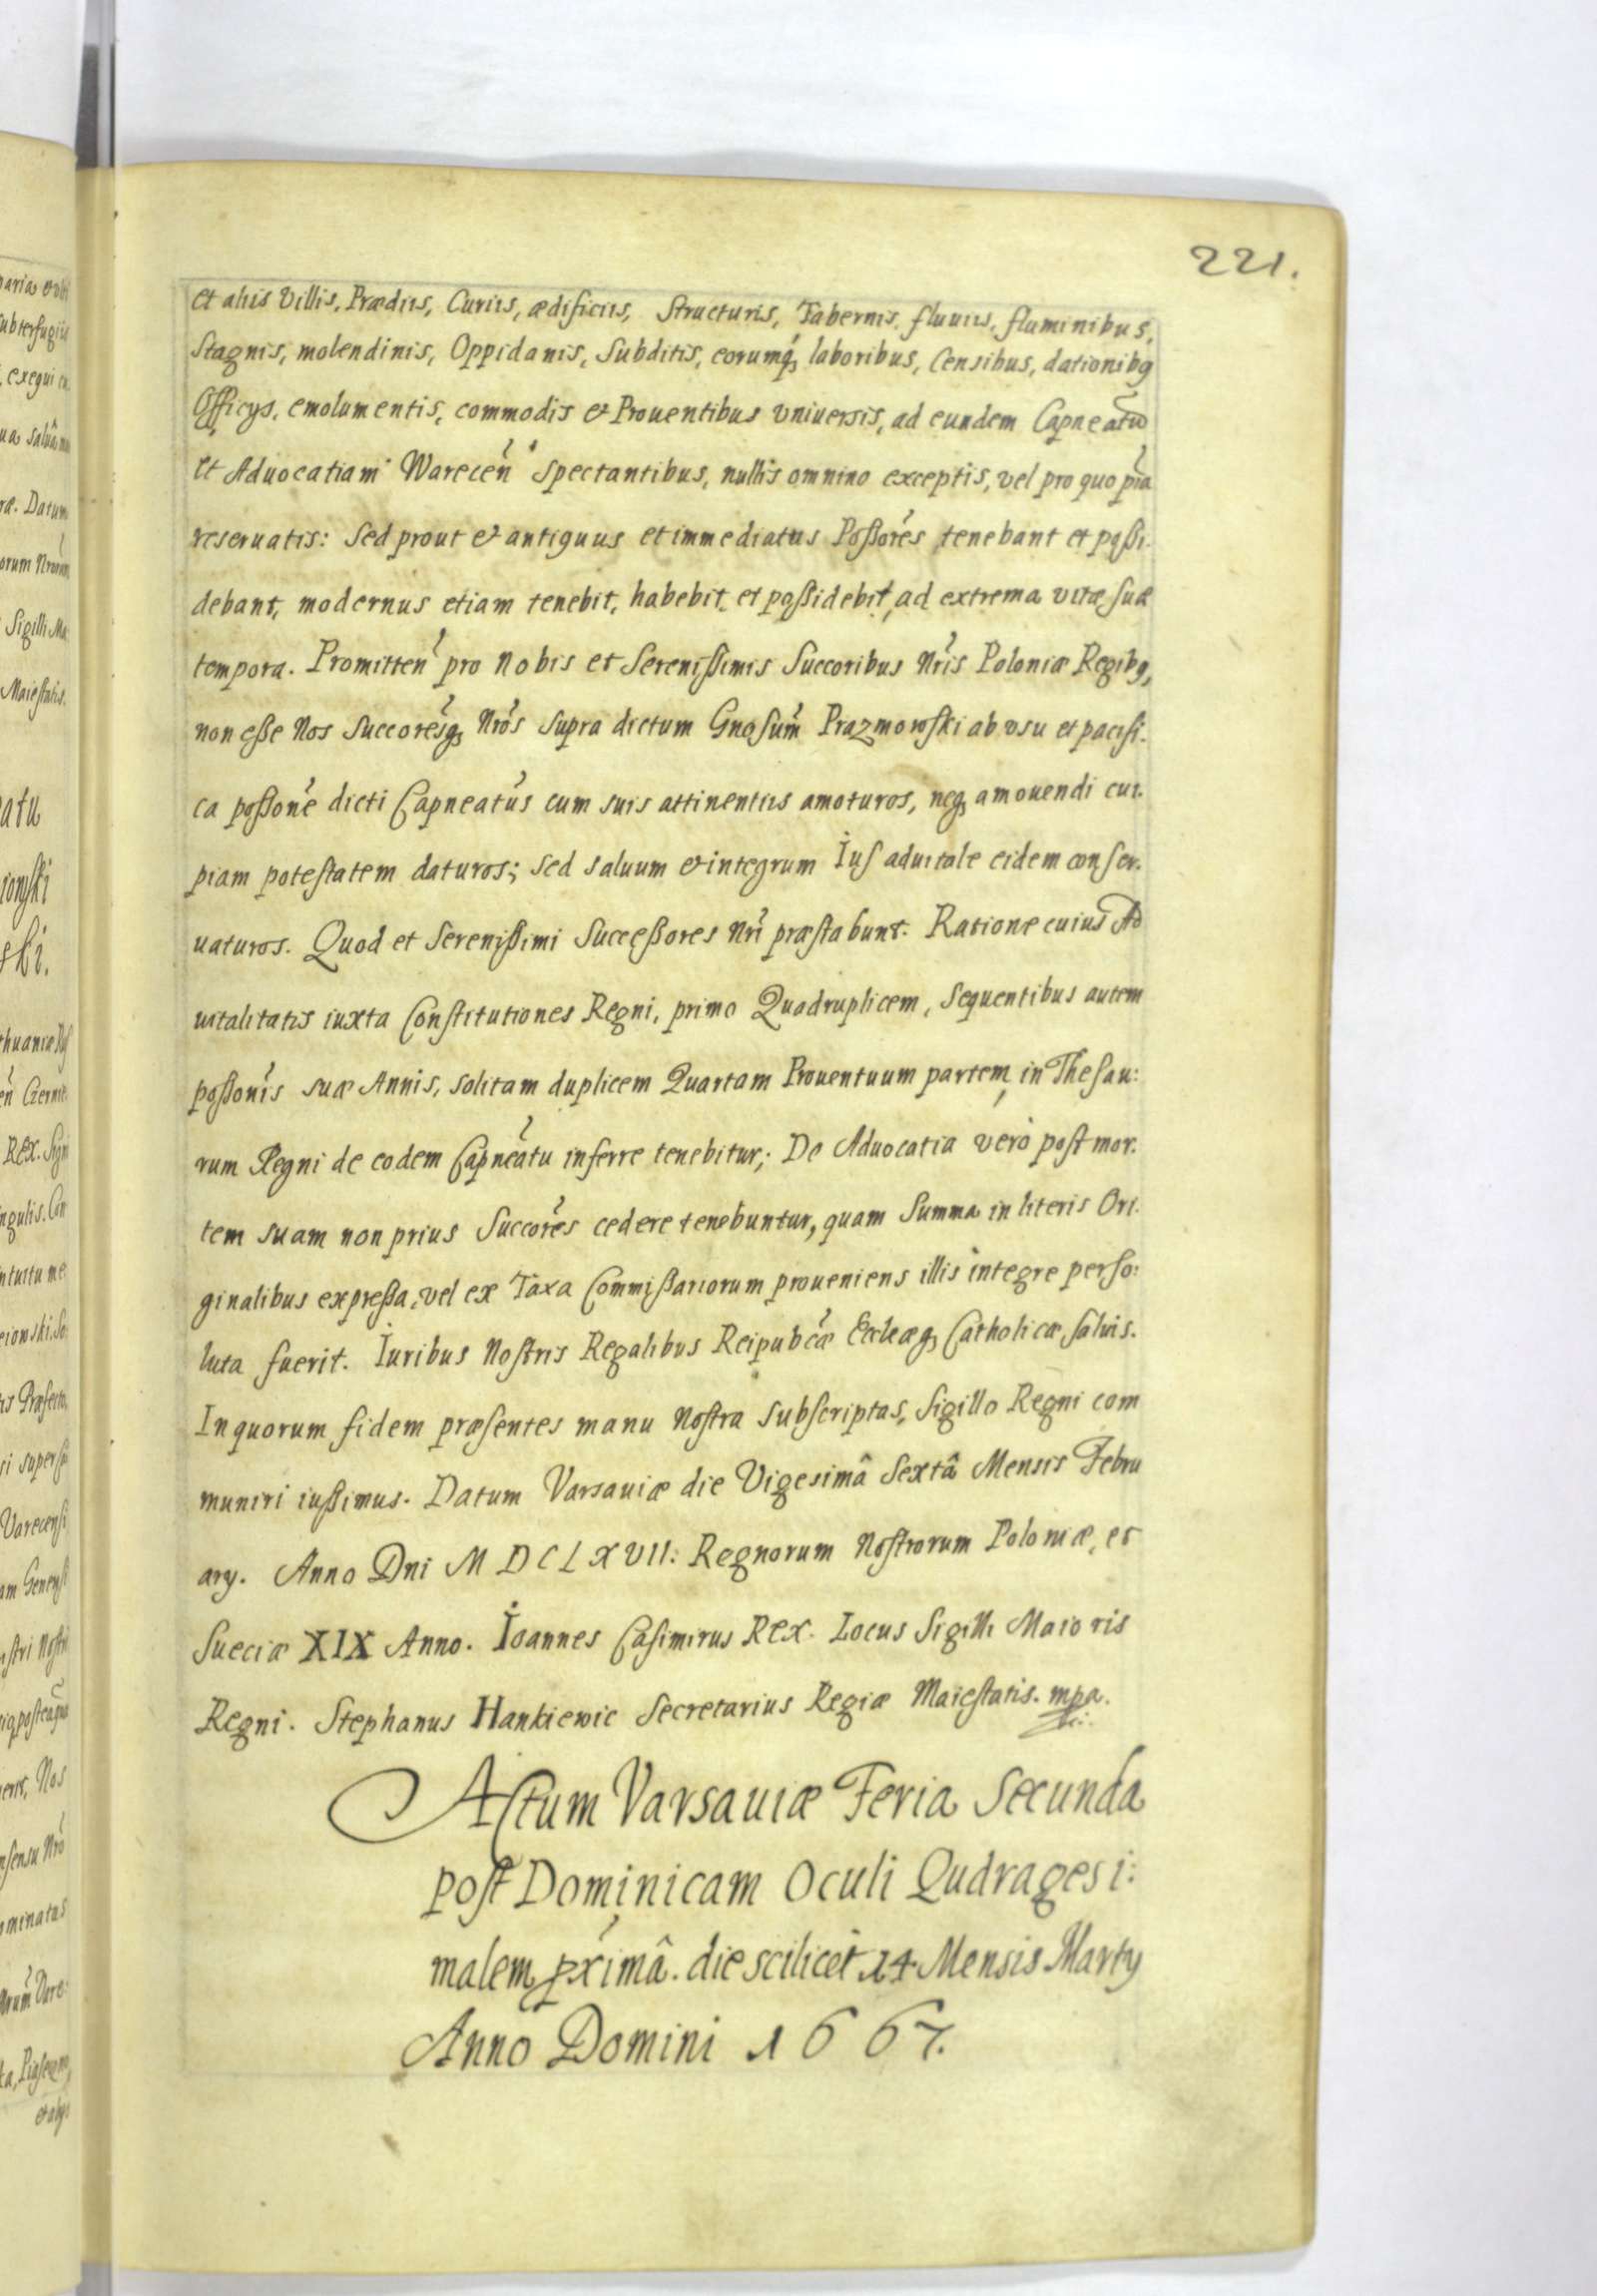 221.
et aliis Villis, Prædiis, Curiis, ædificiis, Structuris, Tabernis, fluuiis, fluminibus,
Stagnis, molendinis, Oppidanis, Subditis, eorumq́ꝫ laboribus, Censibus, dationibꝯ
Officys, emolumentis, commodis & Prouentibus vniuersis, ad eundem Capneatũ
et Aduocatiam Warecen̉ spectantibus, nullis omnino exceptis, vel pro quopia
reseruatis: Sed prout & antiquus et immediatus Poßores tenebant et poßi-
debant, modernus etiam tenebit, habebit et poßidebit, ad extrema vitæ suæ
tempora. Promitten̉ pro nobis et Serenißimis Succoribus Nris Poloniæ Regibꝯ,
non eße Nos Succoresqꝫ Nros supra dictum Gnosum Prazmowski ab vsu et pacifi-
ca poßone dicti Capneatus cum suis attinentiis amoturos, neqꝫ amouendi cui-
piam potestatem daturos; sed saluum & integrum Ius aduitale eidem conser-
uaturos. Quod et Serenißimi Succeßores Nri præstabunt. Ratione cuius Ad
uitalitatis iuxta Constitutiones Regni, primo Quadruplicem, Sequentibus autem
poßonis suæ Annis, solitam duplicem Quartam Prouentuum partem, in Thesau:
rum Regni de eodem Capneatu inferre tenebitur; De Aduocatia verò post mor-
tem suam non prius Succores cedere tenebuntur, quam Summa in literis Ori-
ginalibus expreßa, vel ex Taxa Commißariorum proueniens illis integre perso:
luta fuerit. Iuribus Nostris Regalibus Reipubcæ Eccleæqꝫ Catholicæ, saluis.
In quorum fidem præsentes manu Nostra subscriptas, Sigillo Regni com
muniri iußimus. Datum Varsauiæ die Vigesimâ Sextâ Mensis Febru
ary. Anno Dni M D C L X VII: Regnorum Nostrorum Poloniæ, et
Sueciæ XIX Anno. Ioannes Casimirus Rex. Locus Sigilli Maioris
Regni. Stephanus Hankiewic Secretarius Regiæ Maiestatis. mpa.
Actum Varsauiæ Feria Secunda
post Dominicam Oculi Qudragesi:
malem pximâ. die scilicet 14 Mensis Marty
Anno Domini 1667.